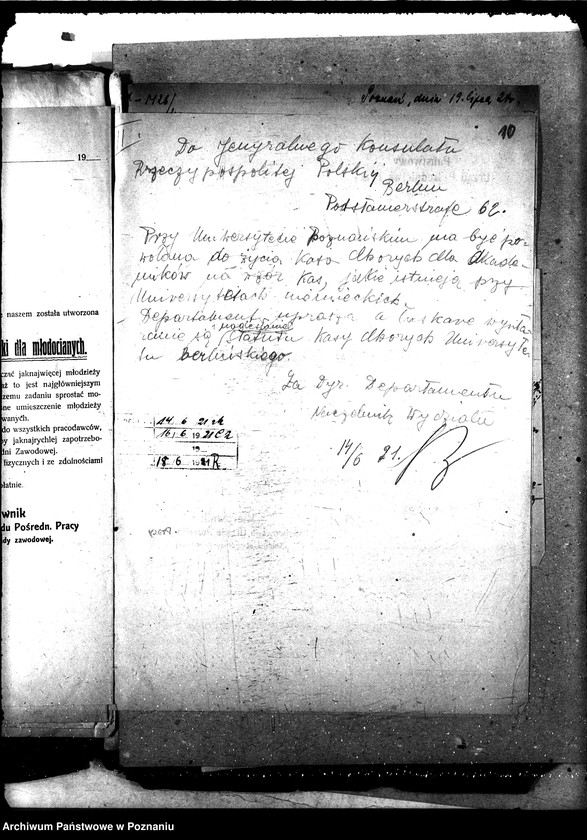 19
e naszem została utworzona
ki dla młodocianych.
czać jaknajwięcej młodzieży
aż to jest najgłówniejszym
zemu zadaniu sprostać mo-
sne umieszczenie młodzieży
wanych.
do wszystkich pracodawców,
by jaknajrychlej zapotrzebo-
dni Zawodowej.
fizycznych i ze zdolnościami
płatnie.
wnik
du Pośredn. Pracy
dy zawodowej.
Poznań, dnia 19. lipca 21r.
10
Do Jeneralnego Konsulatu
Rzeczypospolitej Polskiej
Berlin
Potsdamerstraße 62.
Przy Uniwersytecie Poznańskim ma być po-
wołana do życia Kasa Chorych dla Akade-
mików na wzór kas, jakie istnieją przy
Uniwersytetach niemieckich.
Departament uprasza o łaskawe
nadesłanie
statutu Kasy Chorych Uniwersyte-
tu berlińskiego.
Za Dyr. Departamentu
Naczelnik Wydziału
14/6 21.
14 6 21
16 6 1921
19
18 6 1921
Archiwum Państwowe w Poznaniu